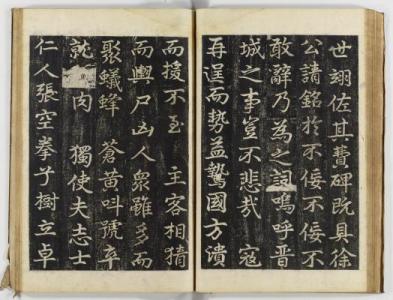 世翊佐其費碑既具徐
公請銘於不佞不佞不
敢辭乃為之詞嗚呼晉
城之事豈不悲哉 寇
再逞而勢益鷙國方潰
而援不至 主客相猜
而輿尸凶人衆雖多而
聚蟻蜂 蒼黄呌號卒
肉 獨使夫志士
仁人張空拳子樹立卓